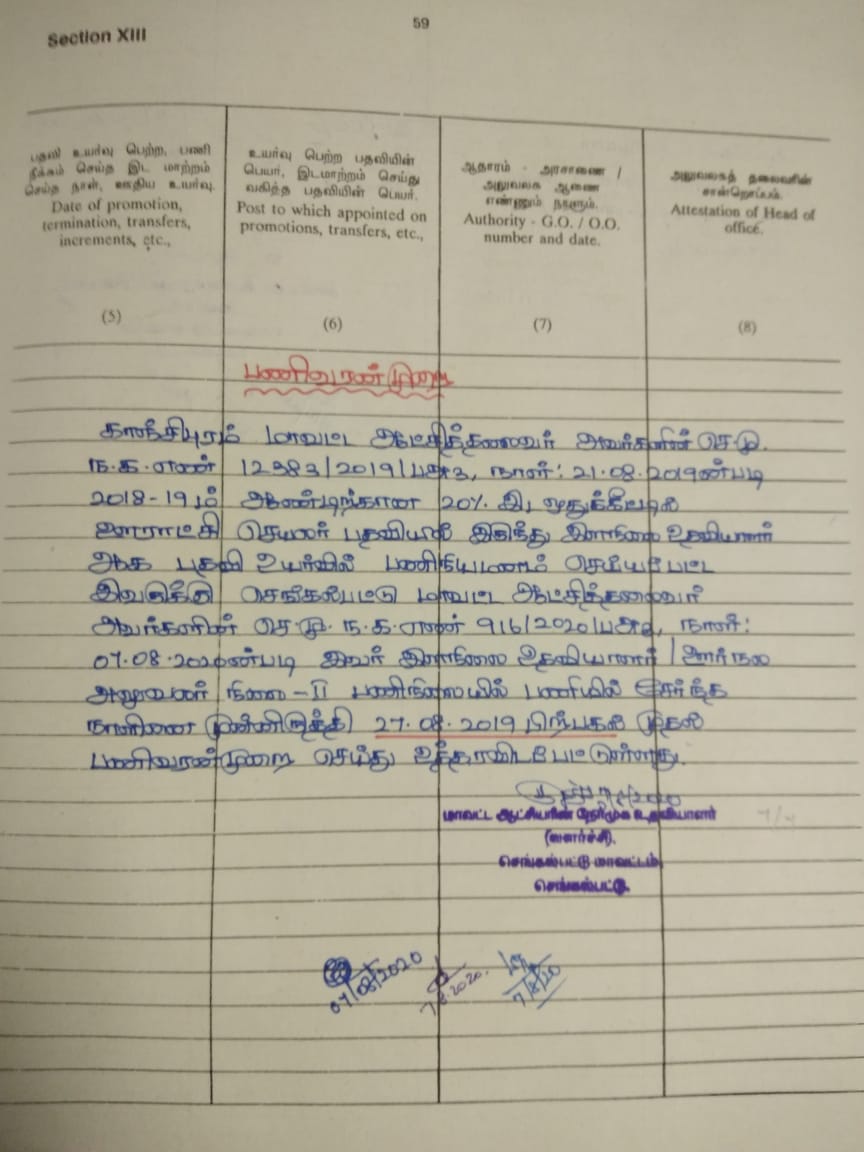 Section XIII
59
பதவி உயர்வு பெற்ற, பணி
நீக்கம் செய்த இட மாற்றம்
செய்த நாள், ஊதிய உயர்வு.
Date of promotion,
termination, transfers,
increments, etc.,
(5)
உயர்வு பெற்ற பதவியின்
பெயர், இடமாற்றம் செய்து
வகித்த பதவியின் பெயர்.
Post to which appointed on
promotions, transfers, etc.,
(6)
ஆதாரம் - அரசாணை /
அலுவலக ஆணை
எண்ணும் நாளும்.
Authority - G.O. / O.O.
number and date.
(7)
அலுவலகத் தலைவரின்
சான்றொப்பம்.
Attestation of Head of
office.
(8)
பணிவரன்முறை
காஞ்சிபுரம் மாவட்ட ஆட்சித்தலைவர் அவர்களின் செ.மு.
ந.க.எண் 12383/2019/பஅ3, நாள்: 21.08.2019ன்படி
2018-19ம் ஆண்டிற்கான 20% இட ஒதுக்கீட்டில்
ஊராட்சி செயலர் பதவியில் இருந்து இளநிலை உதவியாளர்
ஆக பதவி உயர்வில் பணிநியமனம் செய்யப்பட்ட
இவருக்கு செங்கல்பட்டு மாவட்ட ஆட்சித்தலைவர்
அவர்களின் செ.மு. ந.க.எண் 916/2020/பஅ, நாள்:
07.08.2020ன்படி இவர் இளநிலை உதவியாளர் / ஊர்நல
அலுவலர் நிலை-II பணிநிலையில் பணியில் சேர்ந்த
நாளினை முன்னிறுத்தி 27.08.2019 பிற்பகல் முதல்
பணிவரன்முறை செய்து உத்தரவிடப்பட்டுள்ளது.
மாவட்ட ஆட்சியரின் நேர்முக உதவியாளர்
(வளர்ச்சி).
செங்கல்பட்டு மாவட்டம்
செங்கல்பட்டு.
07/08/2020
7.8.2020.
7/8/20